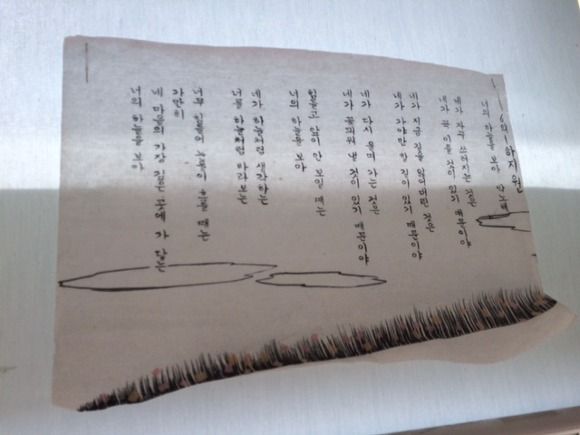 너의 하늘을 보아
네가 자꾸 쓰러지는 것은
네가 꼭 이룰 것이 있기 때문이야
네가 지금 길을 잃어버린 것은
네가 가야만 할 길이 있기 때문이야
네가 다시 울며 가는 것은
네가 꽃피워 낼 것이 있기 때문이야
힘들고 앞이 안 보일 때는
너의 하늘을 보아
네가 하늘처럼 생각하는
너를 하늘처럼 바라보는
너무 힘들어 눈물이 흐를 때는
가만히
네 마음의 가장 깊은 곳에 가 닿는
너의 하늘을 보아